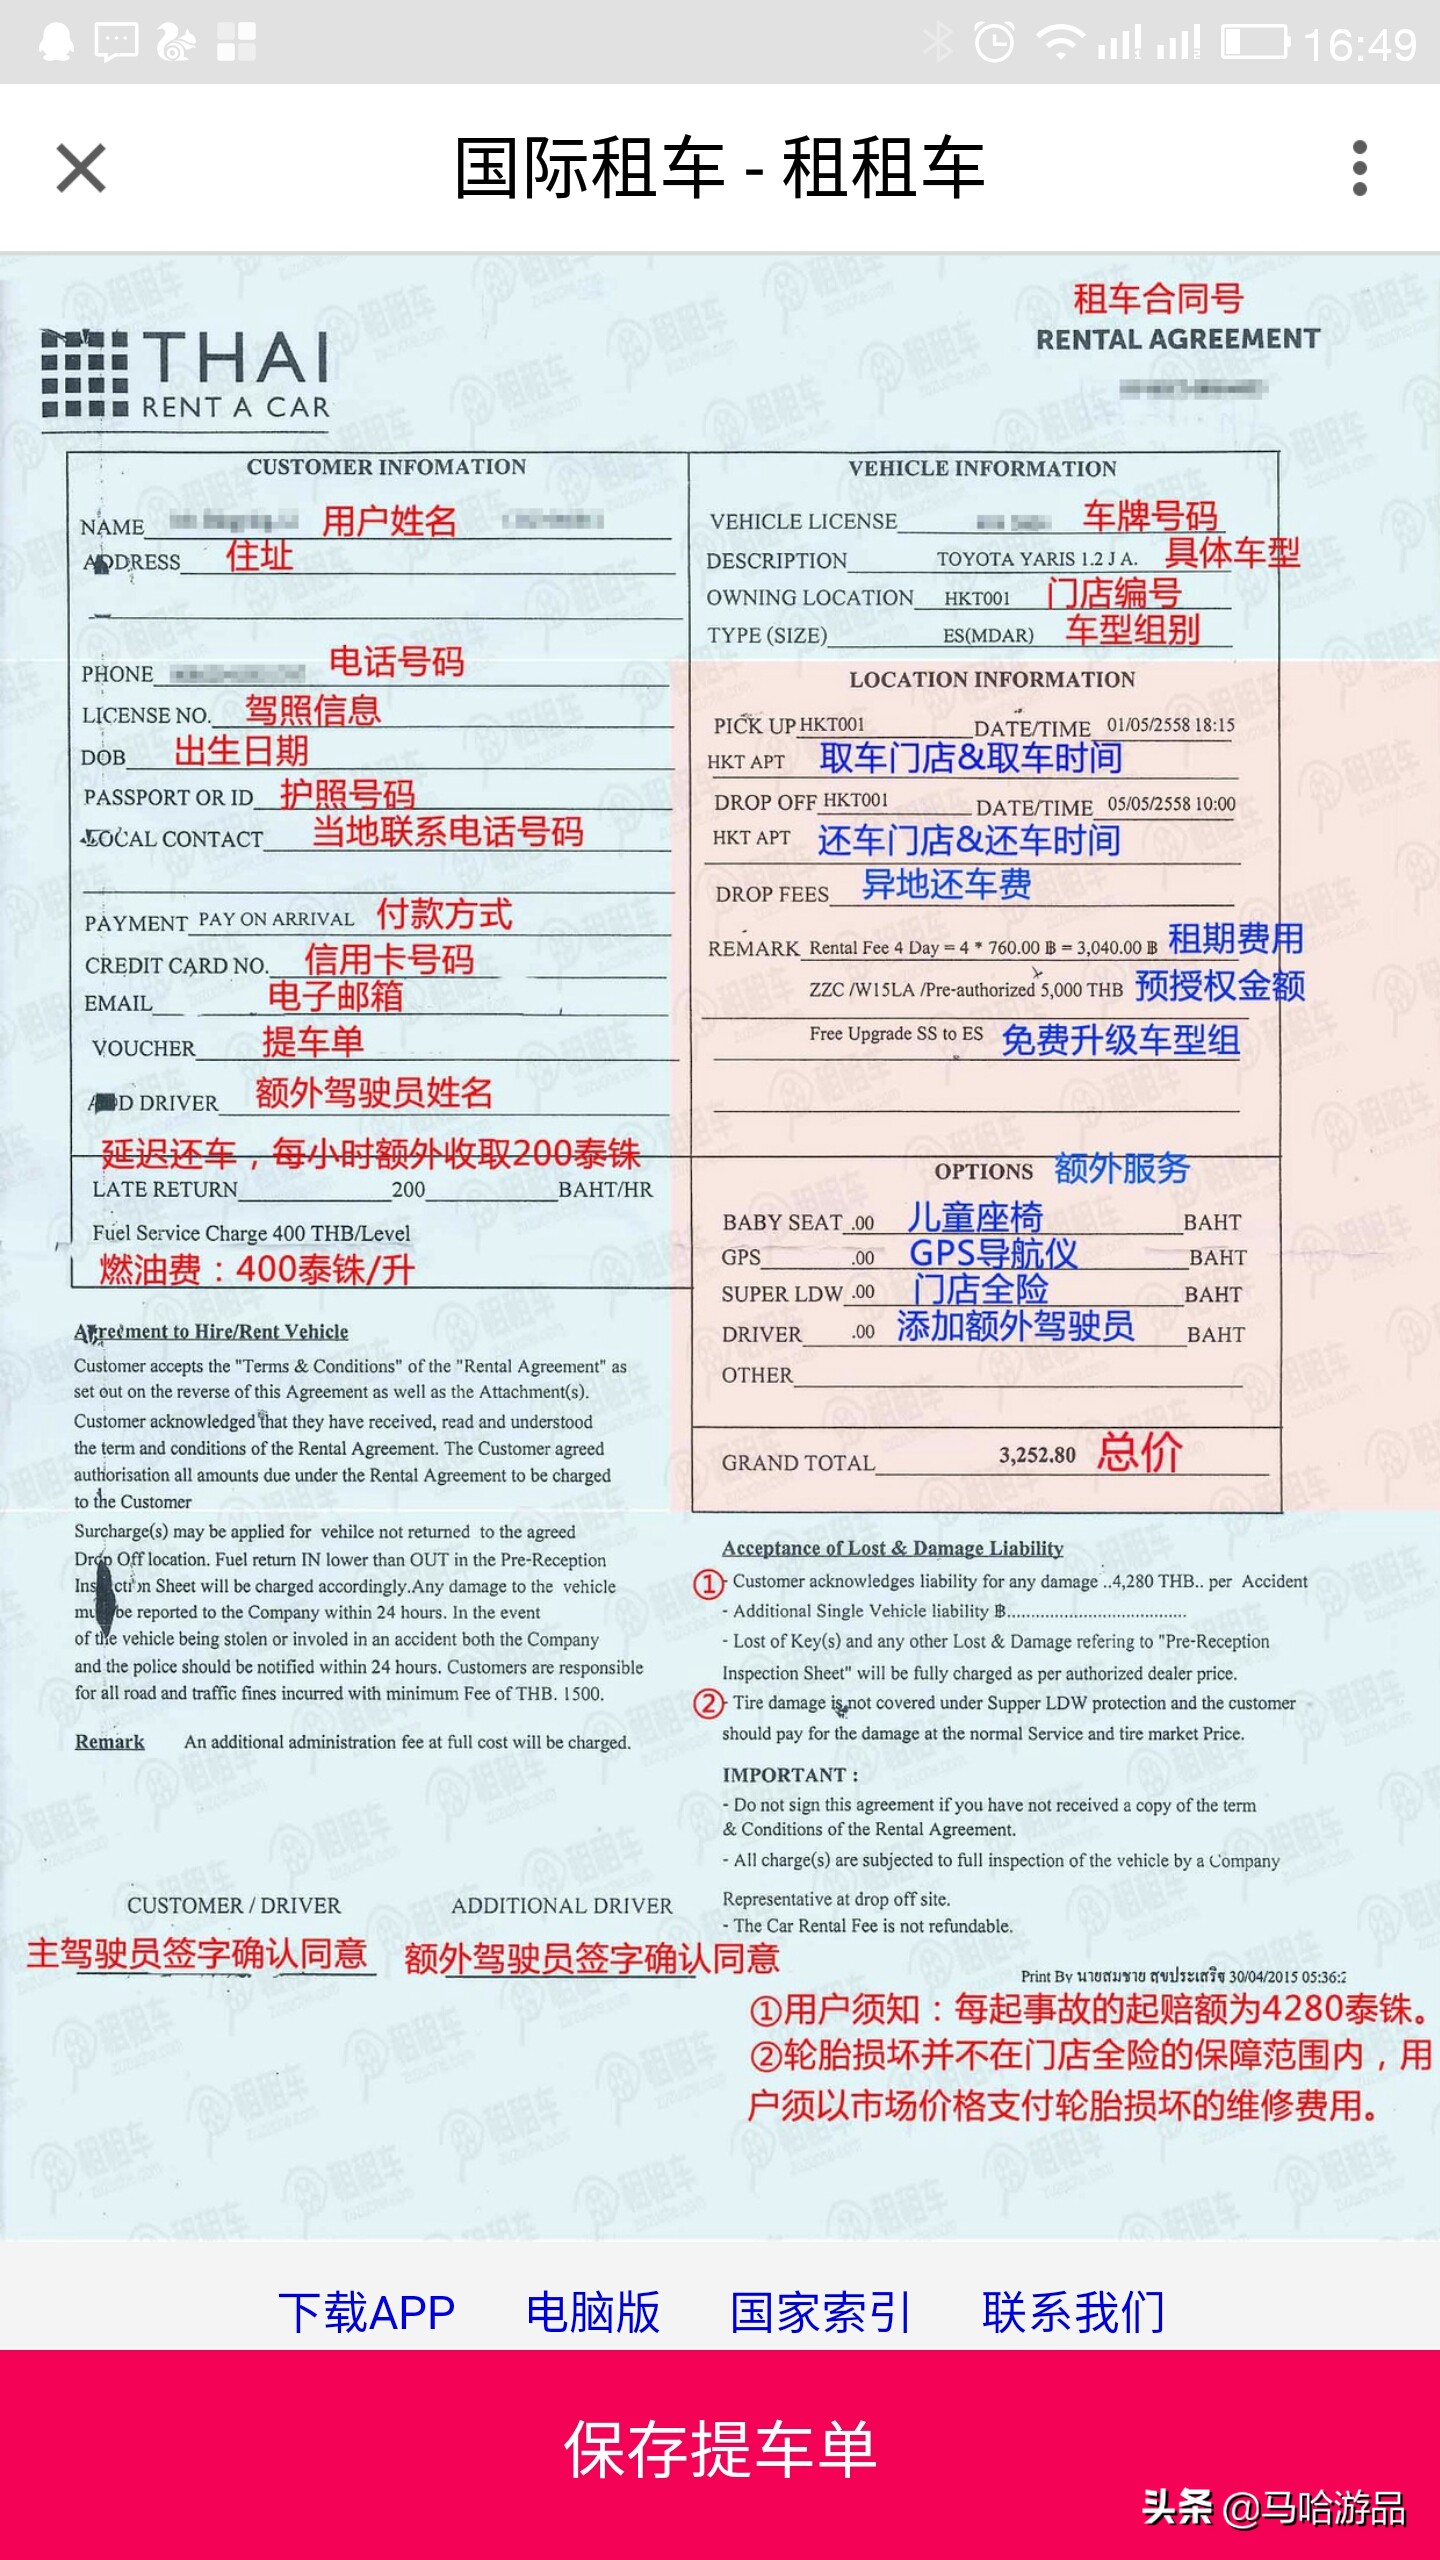 16:49
国际租车 - 租租车
租车合同号
THAI
RENT A CAR
RENTAL AGREEMENT
CUSTOMER INFOMATION
NAME 用户姓名
ADDRESS 住址
PHONE 电话号码
LICENSE NO. 驾照信息
DOB 出生日期
PASSPORT OR ID 护照号码
LOCAL CONTACT 当地联系电话号码
PAYMENT PAY ON ARRIVAL 付款方式
CREDIT CARD NO. 信用卡号码
EMAIL 电子邮箱
VOUCHER 提车单
ADD DRIVER 额外驾驶员姓名
延迟还车，每小时额外收取200泰铢
LATE RETURN 200 BAHT/HR
Fuel Service Charge 400 THB/Level
燃油费：400泰铢/升
VEHICLE INFORMATION
VEHICLE LICENSE 车牌号码
DESCRIPTION TOYOTA YARIS 1.2 J A. 具体车型
OWNING LOCATION HKT001 门店编号
TYPE (SIZE) ES(MDAR) 车型组别
LOCATION INFORMATION
PICK UP HKT001 DATE/TIME 01/05/2558 18:15
HKT APT 取车门店&取车时间
DROP OFF HKT001 DATE/TIME 05/05/2558 10:00
HKT APT 还车门店&还车时间
DROP FEES 异地还车费
REMARK Rental Fee 4 Day = 4 * 760.00 ฿ = 3,040.00 ฿ 租期费用
ZZC /W15LA /Pre-authorized 5,000 THB 预授权金额
Free Upgrade SS to ES 免费升级车型组
OPTIONS 额外服务
BABY SEAT .00 儿童座椅 BAHT
GPS .00 GPS导航仪 BAHT
SUPER LDW .00 门店全险 BAHT
DRIVER .00 添加额外驾驶员 BAHT
OTHER
GRAND TOTAL 3,252.80 总价
Agreement to Hire/Rent Vehicle
Customer accepts the "Terms & Conditions" of the "Rental Agreement" as
set out on the reverse of this Agreement as well as the Attachment(s).
Customer acknowledged that they have received, read and understood
the term and conditions of the Rental Agreement. The Customer agreed
authorisation all amounts due under the Rental Agreement to be charged
to the Customer
Surcharge(s) may be applied for vehilce not returned to the agreed
Drop Off location. Fuel return IN lower than OUT in the Pre-Reception
Inspection Sheet will be charged accordingly.Any damage to the vehicle
must be reported to the Company within 24 hours. In the event
of the vehicle being stolen or involed in an accident both the Company
and the police should be notified within 24 hours. Customers are responsible
for all road and traffic fines incurred with minimum Fee of THB. 1500.
Remark An additional administration fee at full cost will be charged.
CUSTOMER / DRIVER ADDITIONAL DRIVER
主驾驶员签字确认同意 额外驾驶员签字确认同意
Acceptance of Lost & Damage Liability
① - Customer acknowledges liability for any damage ..4,280 THB.. per Accident
- Additional Single Vehicle liability ฿....................................
- Lost of Key(s) and any other Lost & Damage refering to "Pre-Reception
Inspection Sheet" will be fully charged as per authorized dealer price.
② - Tire damage is not covered under Supper LDW protection and the customer
should pay for the damage at the normal Service and tire market Price.
IMPORTANT :
- Do not sign this agreement if you have not received a copy of the term
& Conditions of the Rental Agreement.
- All charge(s) are subjected to full inspection of the vehicle by a Company
Representative at drop off site.
- The Car Rental Fee is not refundable.
Print By นายสมชาย สุขประเสริฐ 30/04/2015 05:36:2
①用户须知：每起事故的起赔额为4280泰铢。
②轮胎损坏并不在门店全险的保障范围内，用
户须以市场价格支付轮胎损坏的维修费用。
下载APP 电脑版 国家索引 联系我们
保存提车单
头条 @马哈游品